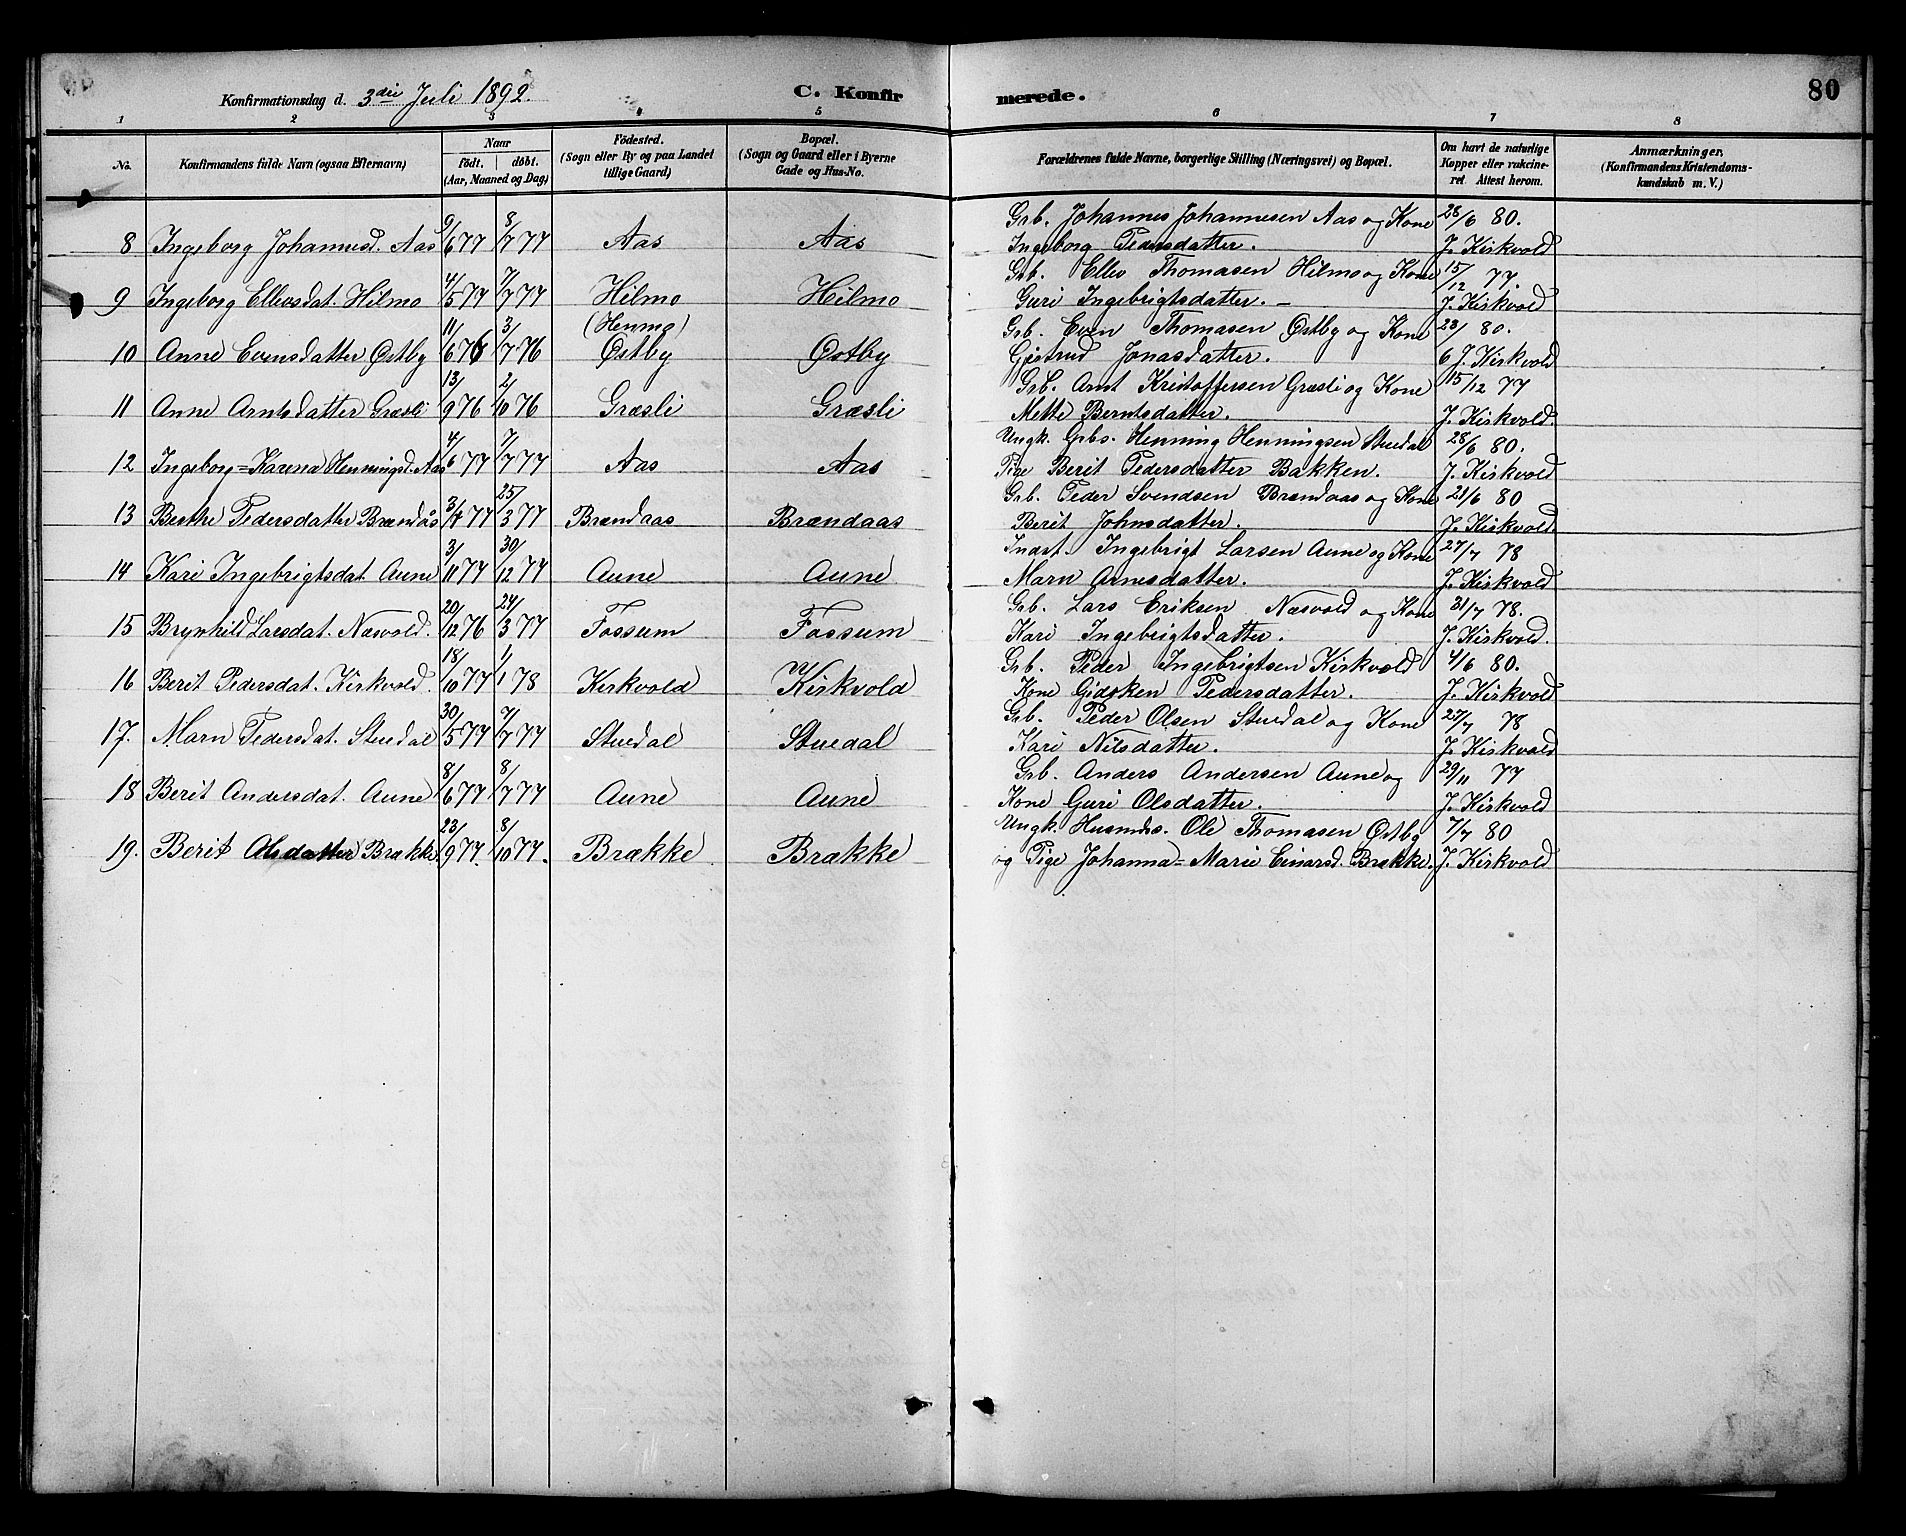 Konfirmationsdag d. 3die Juli 1892. C. Konfirmerede. 80
1 2 3 4 5 6 7 8
No. Konfirmandens fulde Navn (ogsaa Efternavn) Naar født, døbt. (Aar, Maaned og Dag) Fødested. (Sogn eller By og paa Landet tillige Gaard) Bopæl. (Sogn og Gaard eller i Byerne Gade og Hus-No. Forældrenes fulde Navne, borgerlige Stilling (Næringsvei) og Bopæl. Om havt de naturlige Kopper eller vakcineret. Attest herom. Anmærkninger, (Konfirmandens Kristendomskundskab m. V.)
8 Ingeborg Johannesd. Aas 9/6 77 8/7 77 Aas Aas Grb. Johannes Johannesen Aas og Kone 28/6 80.
Ingeborg Pedersdatter. J. Kirkvold
9 Ingeborg Ellevsdat. Hilmo 4/5 77 7/7 77 Hilmo Hilmo Grb. Ellev Thomasen Hilmo og Kone 15/12 77.
Guri Ingebrigtsdatter. – J. Kirkvold
10 Anne Evensdatter Østby 11/6 76 3/7 76 (Henmo) Østby Østby Grb. Even Thomasen Østby og Kone 23/6 80.
Gjertrud Jonasdatter. J. Kirkvold
11 Anne Arntsdatter Græsli 13/9 76 2/10 76 Græsli Græsli Grb. Arnt Kristoffersen Græsli og Kone 15/12 77
Mette Berntsdatter. J. Kirkvold.
12 Ingeborg=Karena Henningsd. Aas 4/6 77 7/7 77 Aas Aas Ungk. Grbs. Henning Henningsen Stuedal 28/6 80.
Pige Berit Pedersdatter Bakken. J. Kirkvold
13 Berthe Pedersdatter Brændås 3/4 77 25/3 77 Brændaas Brændaas Grb. Peder Svendsen Brændaas og Kone 21/6 80
Berit Johnsdatter. J. Kirkvold
14 Kari Ingebrigtsdat. Aune 3/11 77 30/12 77 Aune Aune Indst. Ingebrigt Larsen Aune og Kone 27/7 78
Marn Arnesdatter. J. Kirkvold
15 Brynhild Larsdat. Næsvold. 20/12 76 24/3 77 Fossum Fossum Grb. Lars Eriksen Næsvold og Kone 31/7 78.
Kari Ingebrigtsdatter. J. Kirkvold.
16 Berit Pedersdat. Kirkvold. 18/10 77 1/1 78 Kirkvold Kirkvold Grb. Peder Ingebrigtsen Kirkvold 4/6 80.
Kone Gidsken Pedersdatter. J. Kirkvold
17. Marn Pedersdat. Stuedal 30/5 77 7/7 77 Stuedal Stuedal Grb. Peder Olsen Stuedal og Kone 27/7 78
Kari Nilsdatter. J. Kirkvold
18 Berit Andersdat. Aune 8/6 77 8/7 77 Aune Aune Grb. Anders Andersen Aune og 29/11 77
Kone Guri Olsdatter. J. Kirkvold
19. Berit Olsdatter Brække 23/9 77. 8/10 77. Brække Brække Ungk. Husmds. Ole Thomasen Østby 7/7 80
og Pige Johanna=Marie Einarsd. Brække. J. Kirkvold